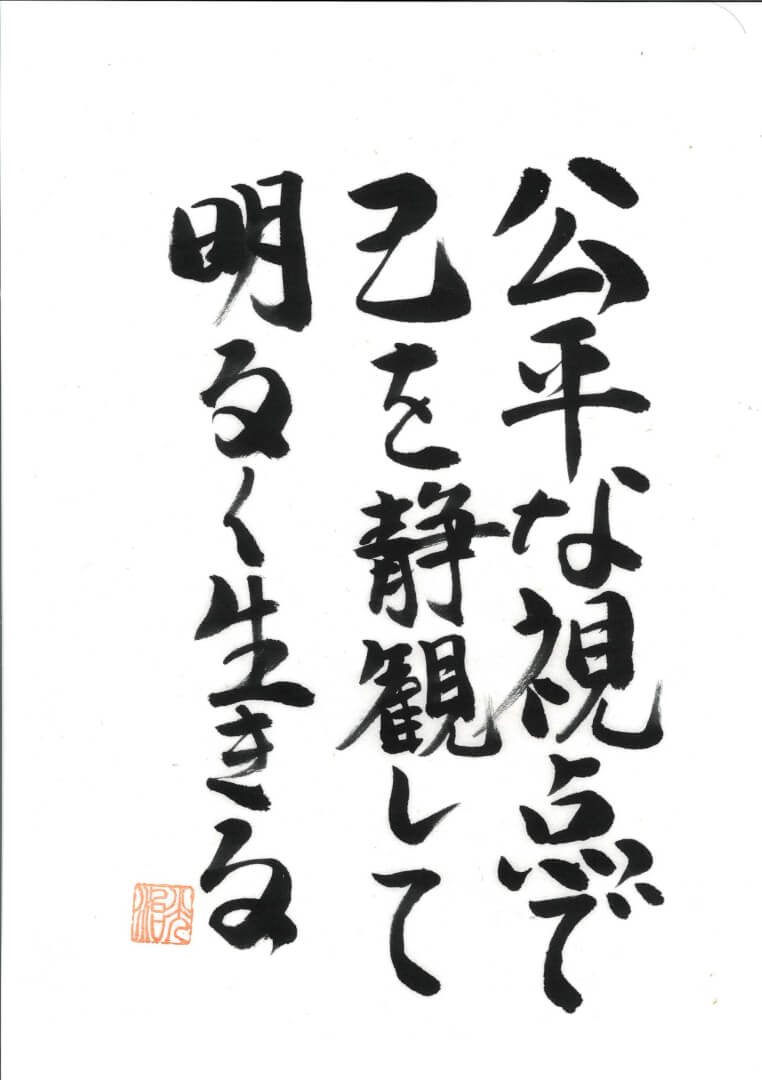 公平な視点で
己を静観して
明るく生きる